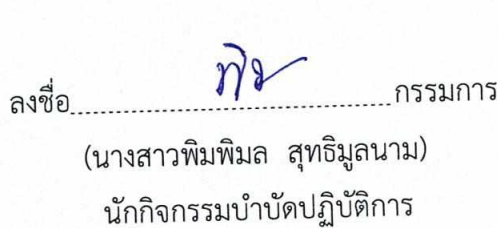 ลงชื่อ........................................กรรมการ
(นางสาวพิมพิมล สุทธิมูลนาม)
นักกิจกรรมบำบัดปฏิบัติการ